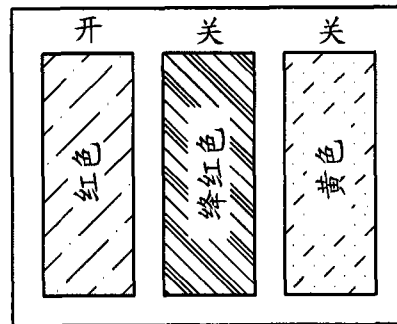 开 关 关
红色 绛红色 黄色